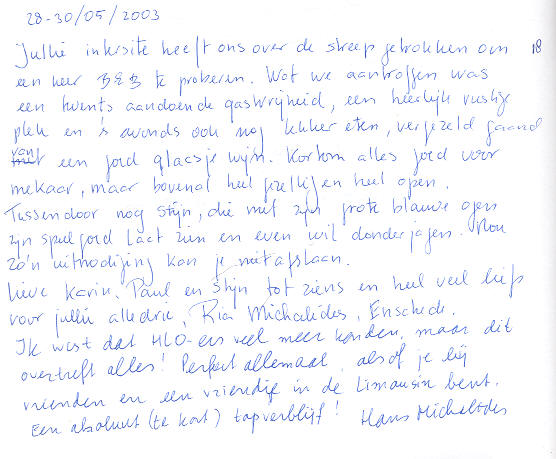 28-30/05/2003
Jullie intersite heeft ons over de streep getrokken om 18
een keer B&B te proberen. Wat we aantroffen was
een twents aandoende gastvrijheid, een heerlijk rustige
plek en 's avonds ook nog lekker eten, vergezeld gaand
van een goed glaasje wijn. Kortom alles goed voor
mekaar, maar bovenal heel gezellig en heel open.
Tussendoor nog Stijn, die met zijn grote blauwe ogen
zijn speelgoed laat zien en even wil donderjagen. Nou
zo'n uitnodiging kan je niet afslaan.
Lieve Karin, Paul en Stijn tot ziens en heel veel liefs
voor jullie alledrie, Ria Michalides, Enschede.
Ik wist dat HLO-ers veel meer konden, maar dit
overtreft alles! Perfect allemaal, alsof je bij
vrienden en een vriendje in de Limousin bent.
Een absoluut (te kort) topverblijf! Hans Michalides